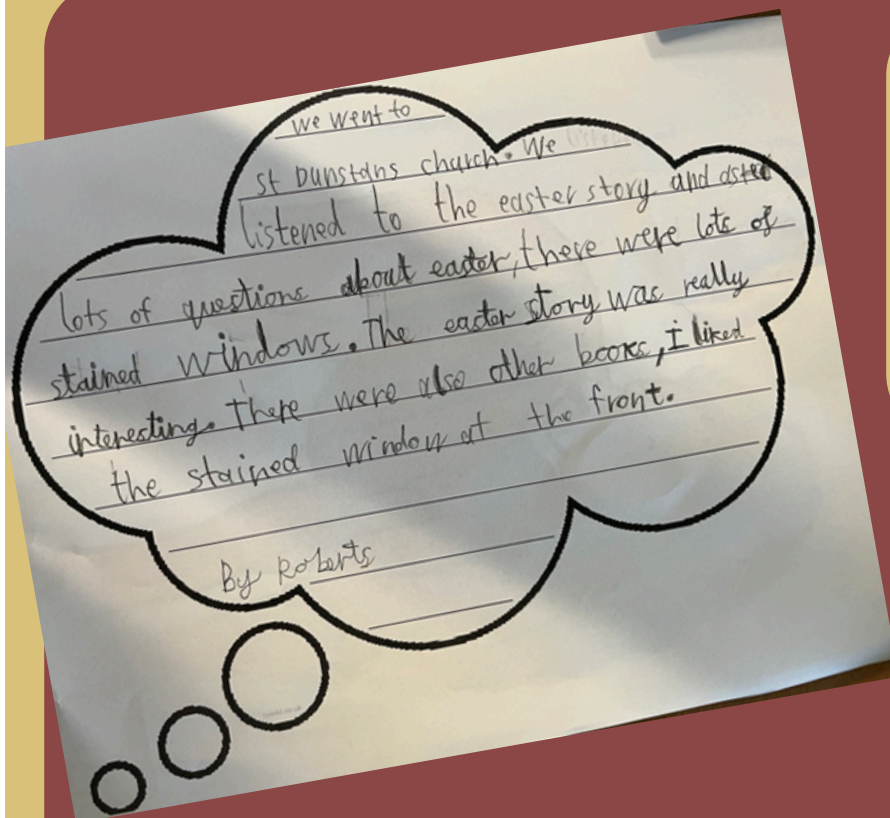 we went to
st Dunstans church. We
listened to the easter story and asked
lots of questions about easter, there were lots of
stained windows. The easter story was really
interesting. There were also other books, I liked
the stained window at the front.
By Roberts